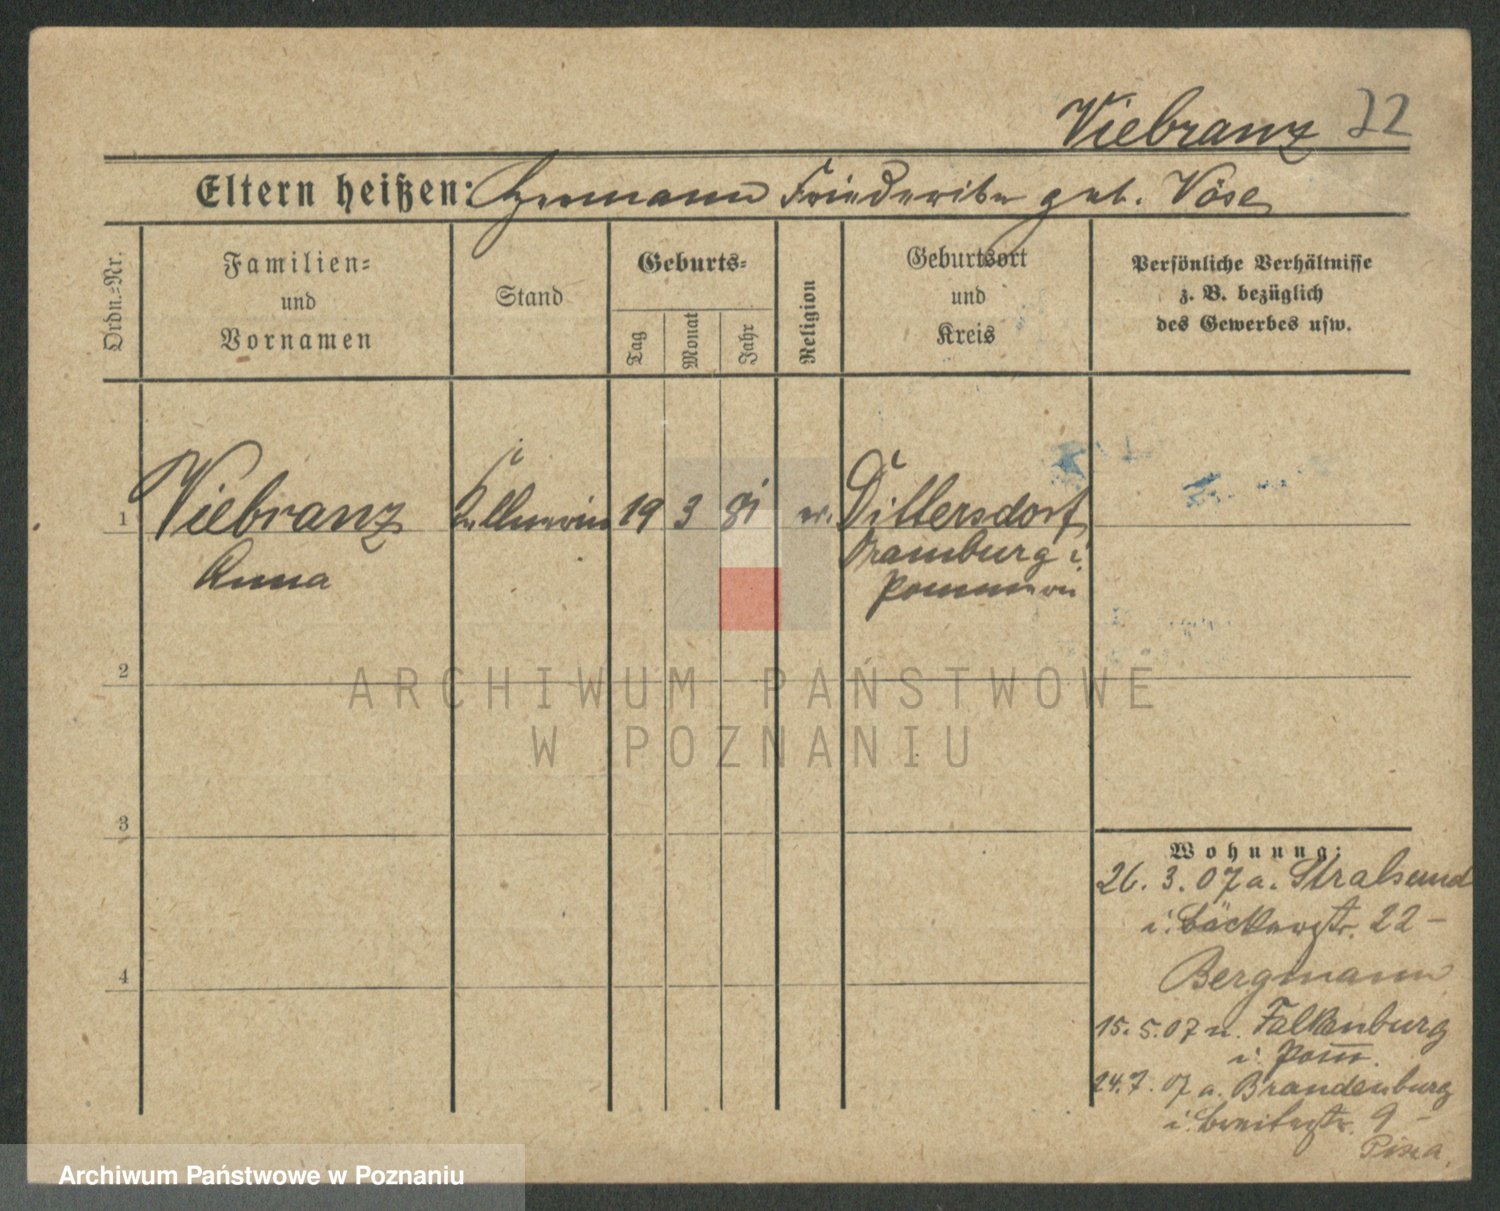 Viebranz 22
Eltern heißen: Hermann Friederike geb. Vöse
Ordn.-Nr.
Familien-
und
Vornamen
Stand
Geburts-
Tag
Monat
Jahr
Religion
Geburtsort
und
Kreis
Persönliche Verhältnisse
z. B. bezüglich
des Gewerbes usw.
1 Viebranz Kellnerin 19 3 81 ev. Dittersdorf
Anna Dramburg i
Pommern
2
ARCHIWUM PAŃSTWOWE
W POZNANIU
3
Wohnung:
26. 3. 07 a. Stralsund
i. Bäckerstr. 22 –
Bergmann
4
15. 5. 07 n. Falkenburg
i. Pom.
24. 7. 07 a. Brandenburg
i. Breitestr. 9 –
Archiwum Państwowe w Poznaniu